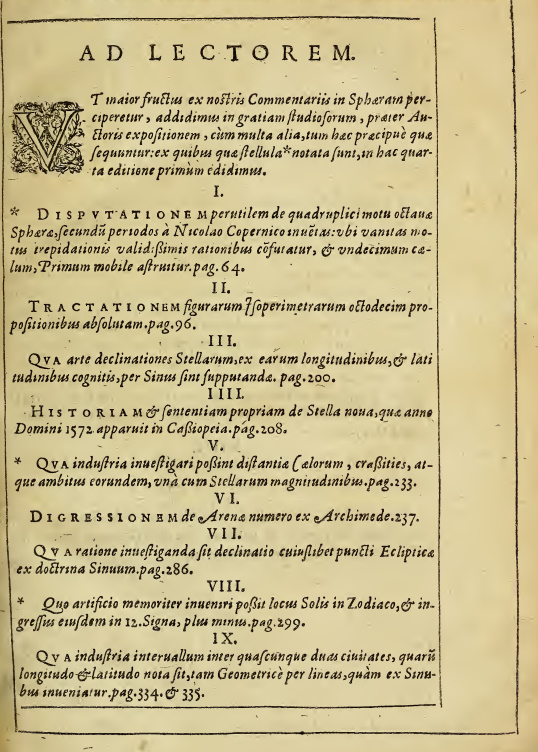 AD LECTOREM.
VT maior fructus ex nostris Commentariis in Sphæram per-
ciperetur, addidimus in gratiam studiosorum, præter Au-
ctoris expositionem, cùm multa alia, tum hæc præcipuè quæ
sequuntur: ex quibus quæ stellula * notata sunt, in hac quar-
ta editione primùm edidimus.
I.
* DISPVTATIONEM perutilem de quadruplici motu octauæ
Sphæræ, secundũ periodos à Nicolao Copernico inuẽtas: vbi vanitas mo-
tus trepidationis validissimis rationibus cõfutatur, & vndecimum cæ-
lum, Primum mobile astruitur. pag. 64.
II.
TRACTATIONEM figurarum Isoperimetrarum octodecim pro-
positionibus absolutam. pag. 96.
III.
QVA arte declinationes Stellarum, ex earum longitudinibus, & lati
tudinibus cognitis, per Sinus sint supputandæ. pag. 200.
IIII.
HISTORIAM & sententiam propriam de Stella noua, quæ anno
Domini 1572 apparuit in Cassiopeia. pag. 208.
V.
* QVA industria inuestigari possint distantiæ Cælorum, crassities, at-
que ambitus eorundem, vnà cum Stellarum magnitudinibus. pag. 233.
VI.
DIGRESSIONEM de Arenæ numero ex Archimede. 237.
VII.
QVA ratione inuestiganda sit declinatio cuiuslibet puncti Eclipticæ
ex doctrina Sinuum. pag. 286.
VIII.
* Quo artificio memoriter inueniri possit locus Solis in Zodiaco, & in-
gressus eiusdem in 12. Signa, plus minus. pag. 299.
IX.
QVA industria interuallum inter quascunque duas ciuitates, quarũ
longitudo & latitudo nota sit, tam Geometricè per lineas, quàm ex Sinu-
bus inueniatur. pag. 334. & 335.